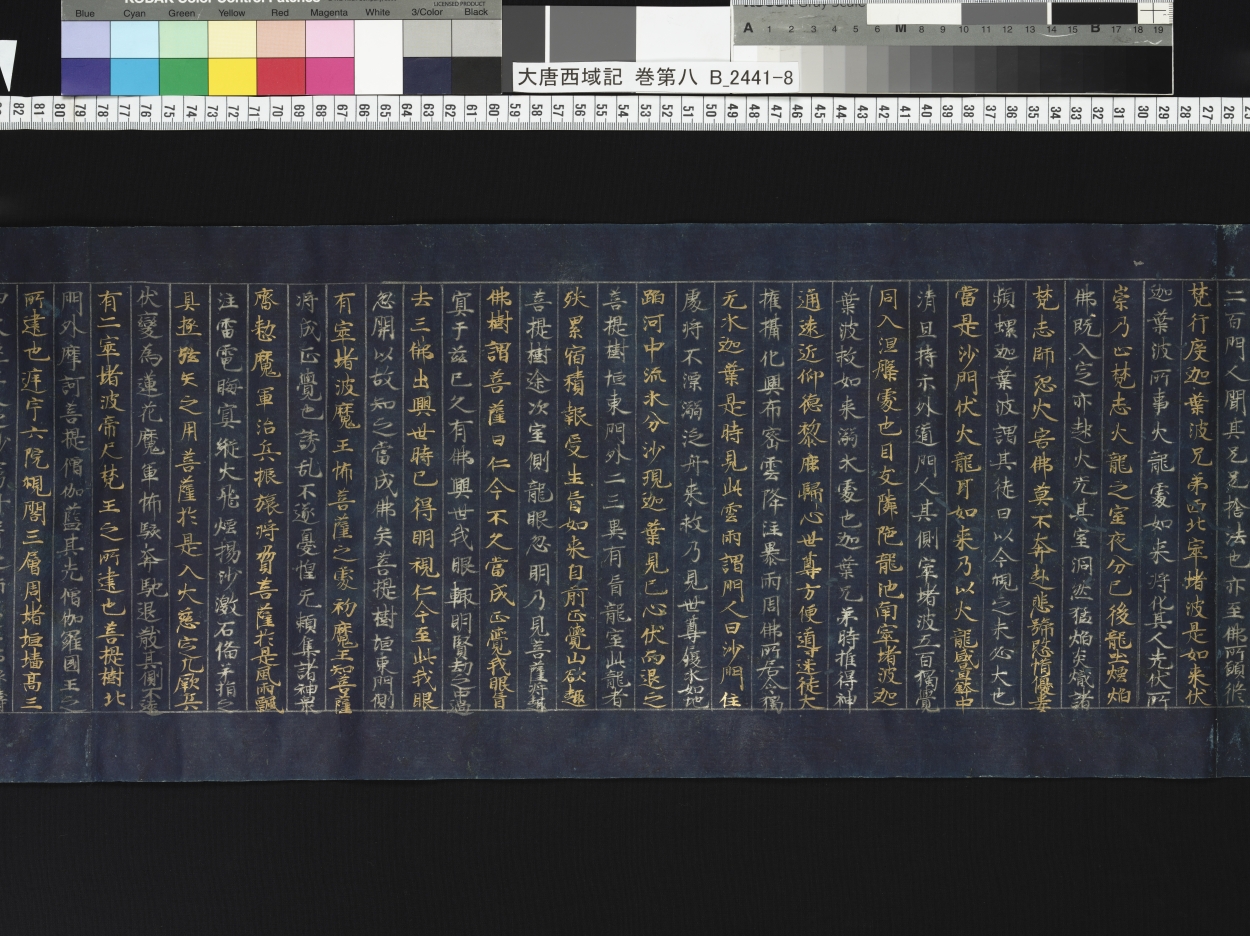 KODAK Color Control Patches
LICENSED PRODUCT
Blue Cyan Green Yellow Red Magenta White 3/Color Black
A 1 2 3 4 5 6 M 8 9 10 11 12 13 14 15 B 17 18 19
大唐西域記 巻第八 B_2441-8
82 81 80 79 78 77 76 75 74 73 72 71 70 69 68 67 66 65 64 63 62 61 60 59 58 57 56 55 54 53 52 51 50 49 48 47 46 45 44 43 42 41 40 39 38 37 36 35 34 33 32 31 30 29 28 27 26
二百門人聞其兄之捨法也亦至佛所願修
梵行度迦葉波兄弟西北窣堵波是如来伏
迦葉波所事火龍處如来将化其人先伏所
崇乃止梵志火龍之室夜分已後龍出煙焔
佛既入定亦起火光其室洞然猛焔炎熾諸
梵志師恐火害佛莫不奔赴悲號愍惜優婁
頻螺迦葉波謂其徒曰以今覩之未必火也
當是沙門伏火龍耳如来乃以火龍盛置鉢中
清旦持示外道門人其側窣堵波五百獨覺
同入涅槃處也目支隣陁龍池南窣堵波迦
葉波救如来溺水處也迦葉兄弟時推得神
通遠近仰德黎庶歸心世尊方便導迷徒大
權攝化興布密雲降注暴雨周佛所居令獨
无水迦葉是時見此雲雨謂門人曰沙門住
處将不漂溺泛舟来救乃見世尊履水如地
蹈河中流水分沙現迦葉見已心伏而退之
菩提樹垣東門外二三里有盲龍室此龍者
殃累宿積報受生盲如来自前正覺山欲趣
菩提樹途次室側龍眼忽明乃見菩薩将趣
佛樹謂菩薩曰仁今不久當成正覺我眼盲
冥于茲已久有佛興世我眼輒明賢劫之中過
去三佛出興世時已得明視仁今至此我眼
忽開以故知之當成佛矣菩提樹垣東門側
有窣堵波魔王怖菩薩之處初魔王知菩薩
将成正覺也誘乱不遂憂惶无頼集諸神衆
齊整魔軍治兵振旅将脅菩薩於是風雨飄
注雷電晦冥縱火飛煙揚沙激石俻矛楯之
具極弦矢之用菩薩於是入大慈定凡厥兵
仗變為蓮花魔軍怖駭奔馳退散其側不遠
有二窣堵波帝釋梵王之所建也菩提樹北
門外摩訶菩提僧伽藍其先僧伽羅國王之
所建也庭宇六院觀閣三層周堵垣墻高三